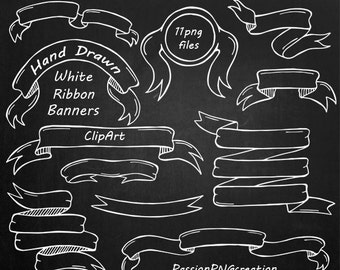 11png
files
Hand Drawn
White
Ribbon
Banners
ClipArt
PassionPNGcreation